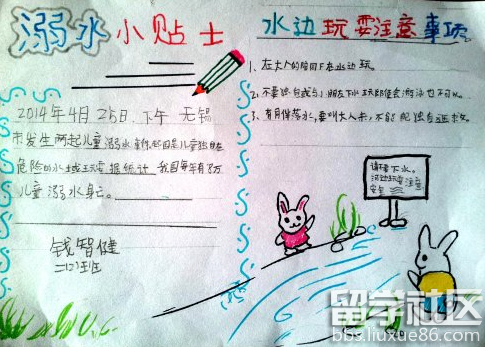 溺水小贴士
2014年4月25日下午 无锡
市发生两起儿童溺水事件,起因是儿童独自在
危险的水域玩耍,据统计,我国每年有5万
儿童溺水身亡。
钱智健
二(2)班
水边玩耍注意事项
1、在大人的陪同下在水边玩。
2、不要独自或与小朋友下水玩即使会游泳也不可以。
3、有同伴落水,要叫大人来,不能独自
请不要下水。
河边玩耍注意
安全
留学社区
bbs.liuxue86.com